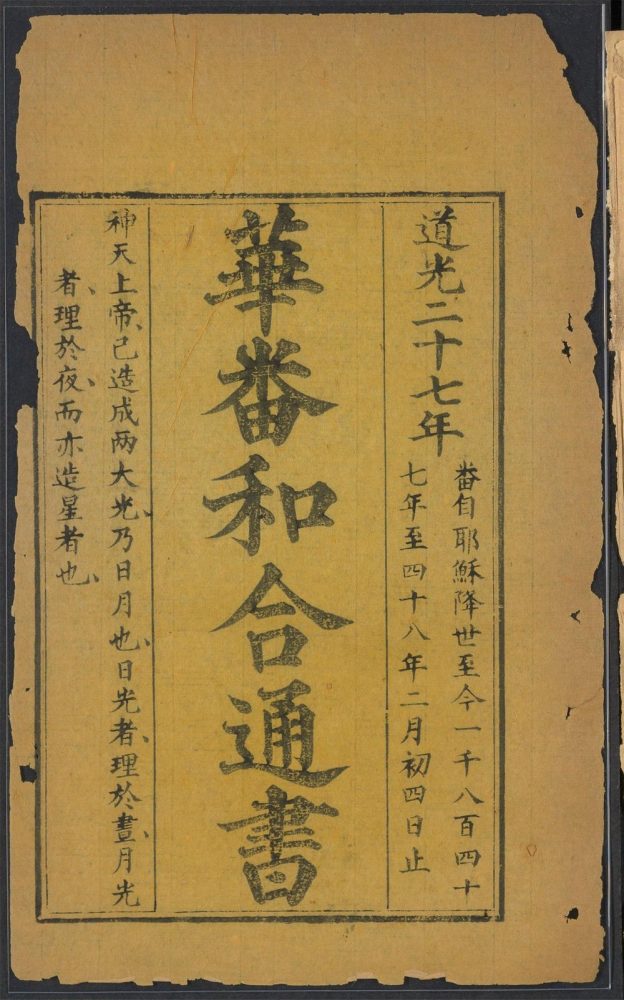 道光二十七年
番自耶穌降世至今一千八百四十
七年至四十八年二月初四日止
華番和合通書
神天上帝、已造成两大光、乃日月也、日光者、理於晝、月光
者、理於夜、而亦造星者也、